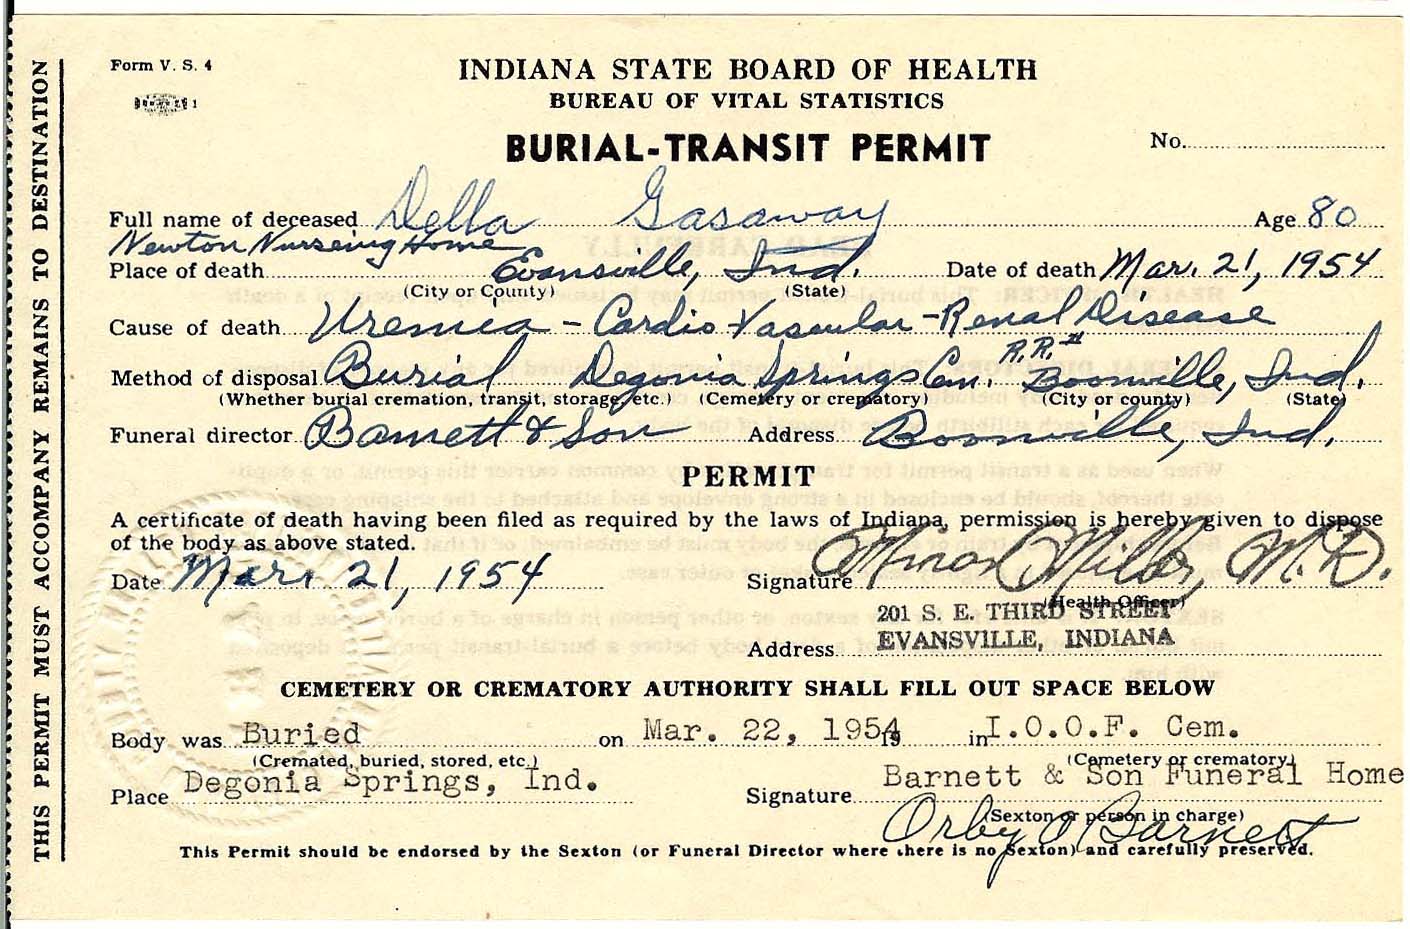 THIS PERMIT MUST ACCOMPANY REMAINS TO DESTINATION
Form V. S. 4
INDIANA STATE BOARD OF HEALTH
BUREAU OF VITAL STATISTICS
BURIAL-TRANSIT PERMIT
No.
Full name of deceased Della Gasaway Age 80
Newton Nurseing Home
Place of death Evansville, Ind. Date of death Mar. 21, 1954
(City or County) (State)
Cause of death Uremia - Cardio Vascular - Renal Disease
R.R.#
Method of disposal Burial Degonia Springs Cem. Boonville, Ind.
(Whether burial cremation, transit, storage, etc.) (Cemetery or crematory) (City or county) (State)
Funeral director Barnett & Son Address Boonville, Ind.
PERMIT
A certificate of death having been filed as required by the laws of Indiana, permission is hereby given to dispose
of the body as above stated.
Date Mar. 21, 1954 Signature Miller, M.D.
(Health Officer)
201 S. E. THIRD STREET
Address EVANSVILLE, INDIANA
CEMETERY OR CREMATORY AUTHORITY SHALL FILL OUT SPACE BELOW
Body was Buried on Mar. 22, 1954 19 in I.O.O.F. Cem.
(Cremated, buried, stored, etc.) (Cemetery or crematory)
Place Degonia Springs, Ind. Signature Barnett & Son Funeral Home
(Sexton or person in charge)
Orby O Barnett
This Permit should be endorsed by the Sexton (or Funeral Director where there is no Sexton) and carefully preserved.